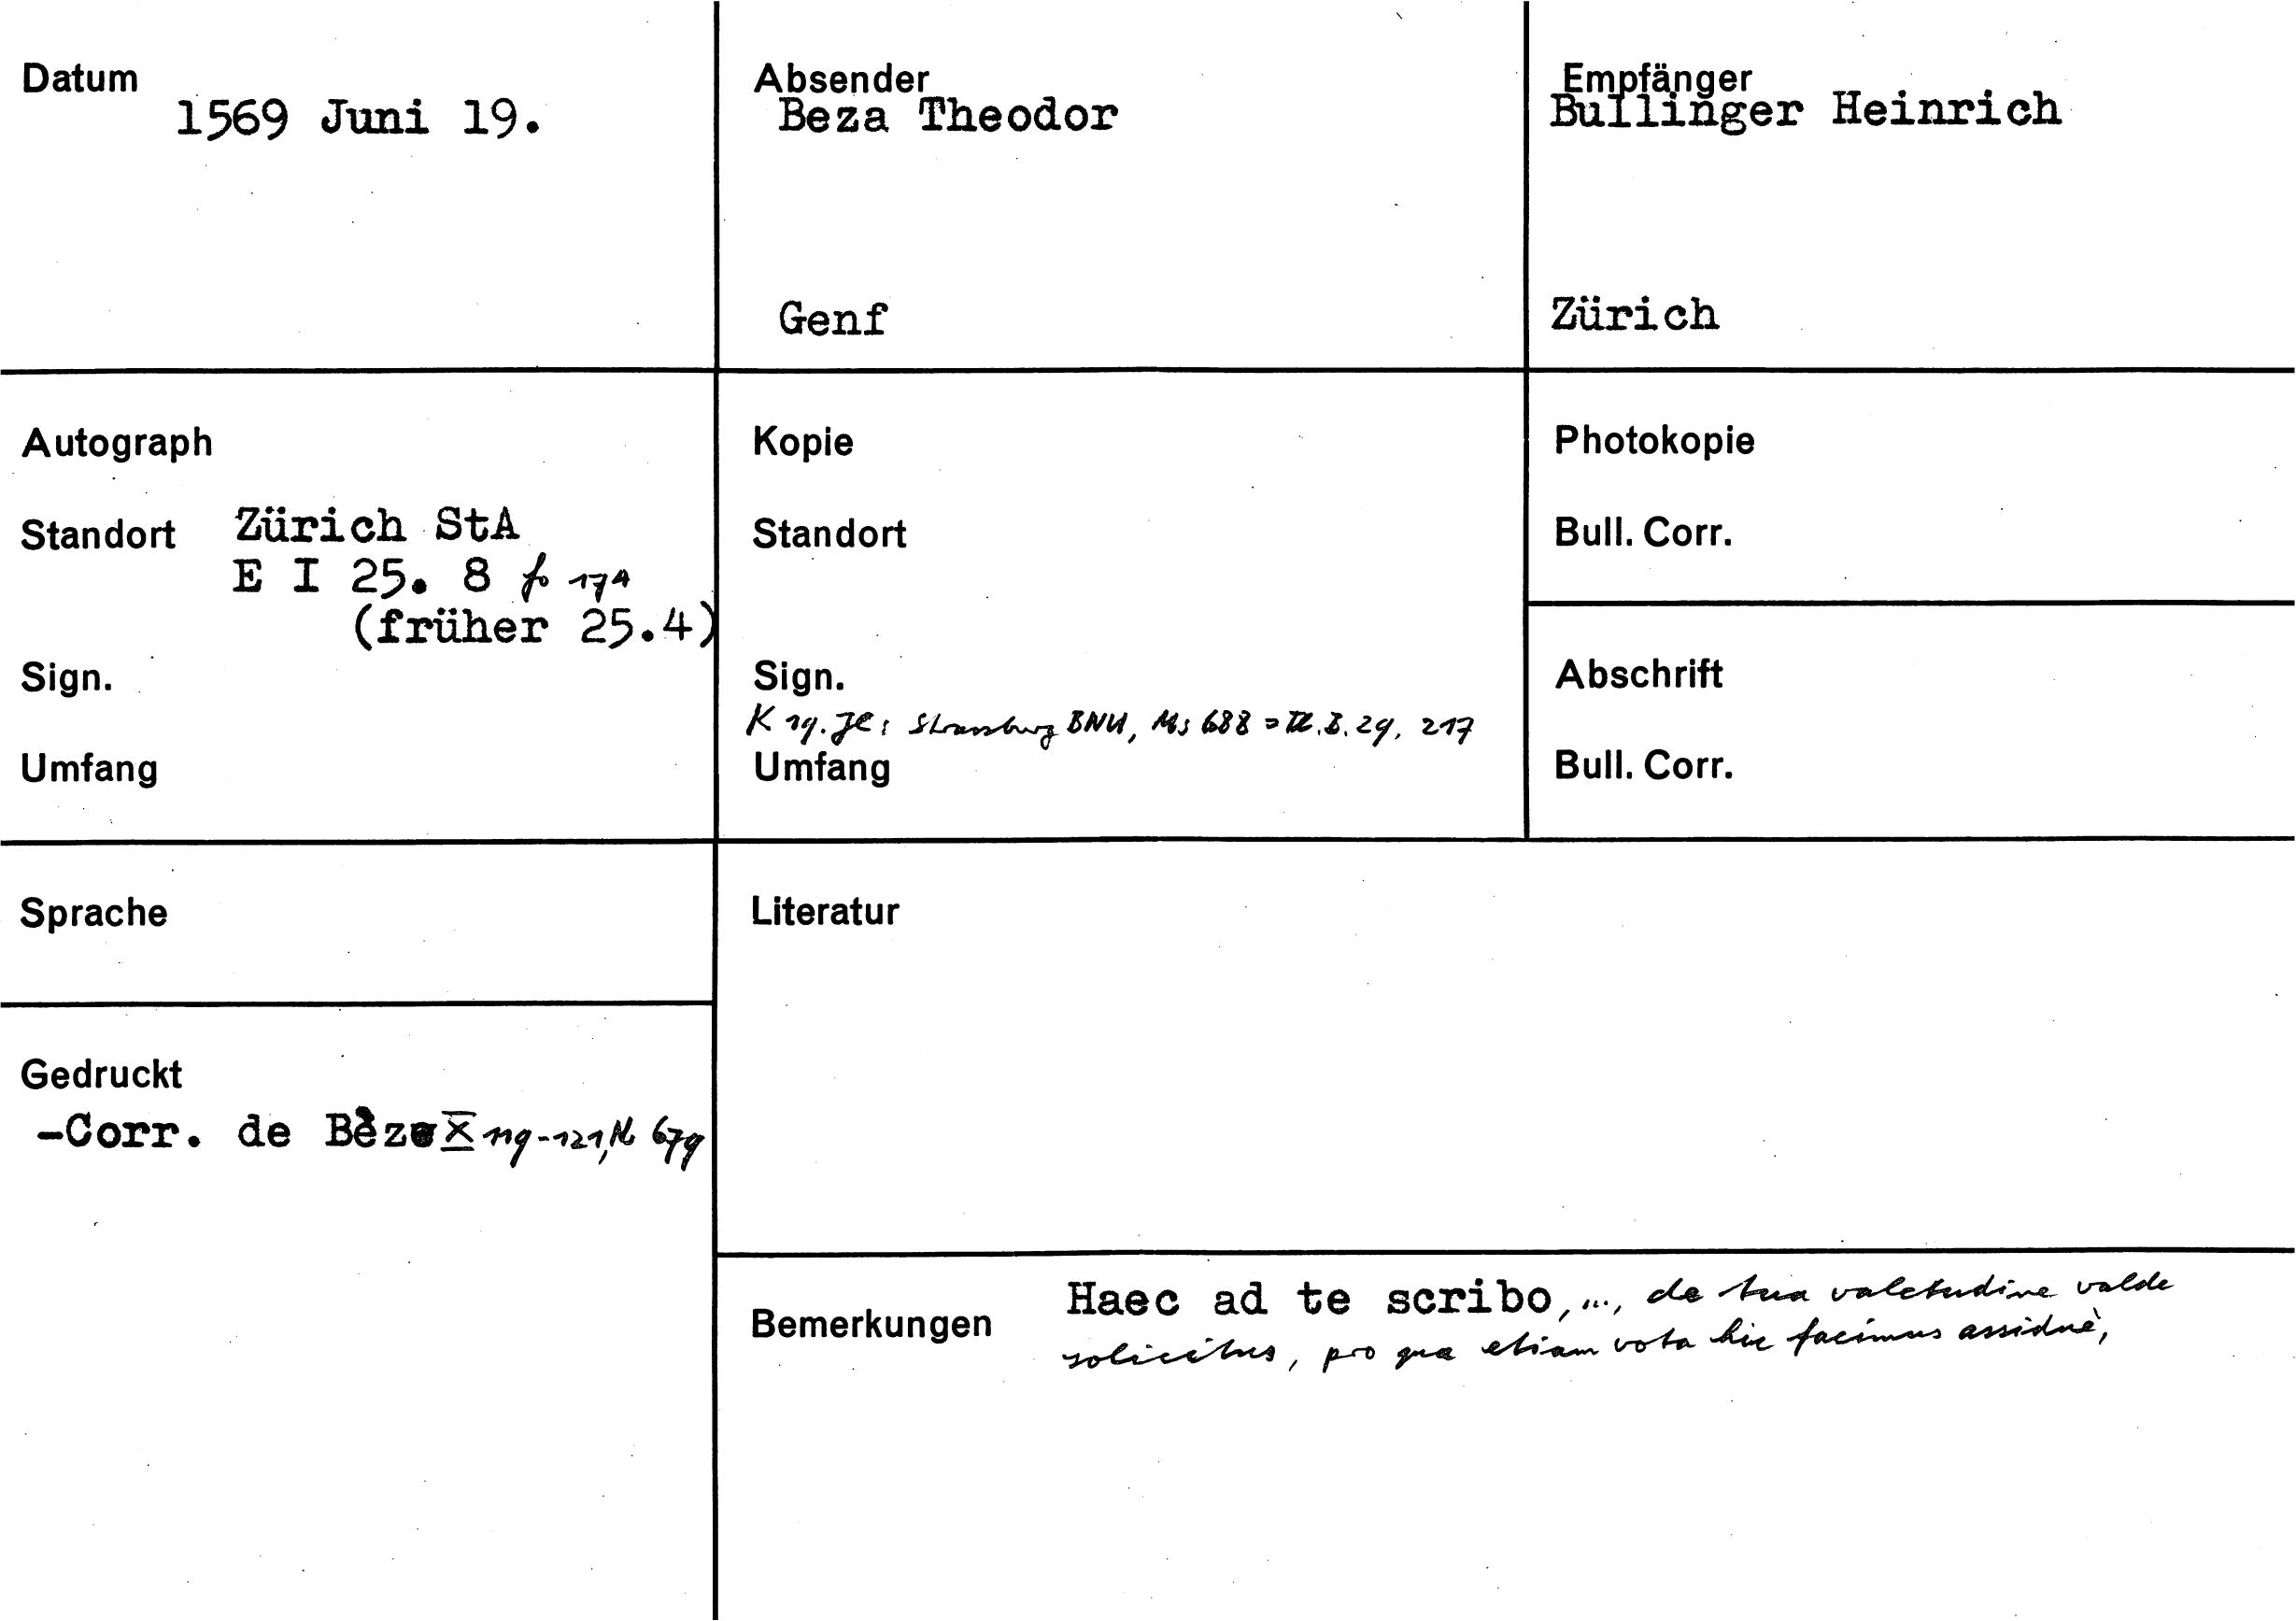 Datum
1569 Juni 19.
Absender
Beza Theodor
Genf
Empfänger
Bullinger Heinrich
Zürich
Autograph
Standort Zürich StA
E I 25. 8 fo 174
(früher 25.4)
Sign.
Umfang
Kopie
Standort
Sign.
K 19. Jh: Strassburg BNU, Ms 688 = B. 29, 217
Umfang
Photokopie
Bull. Corr.
Abschrift
Bull. Corr.
Sprache
Gedruckt
-Corr. de Bèze X 119-121, N 679
Literatur
Bemerkungen
Haec ad te scribo, ..., de tua valetudine valde
solicitus, pro qua etiam vota hic facimus assiduè,